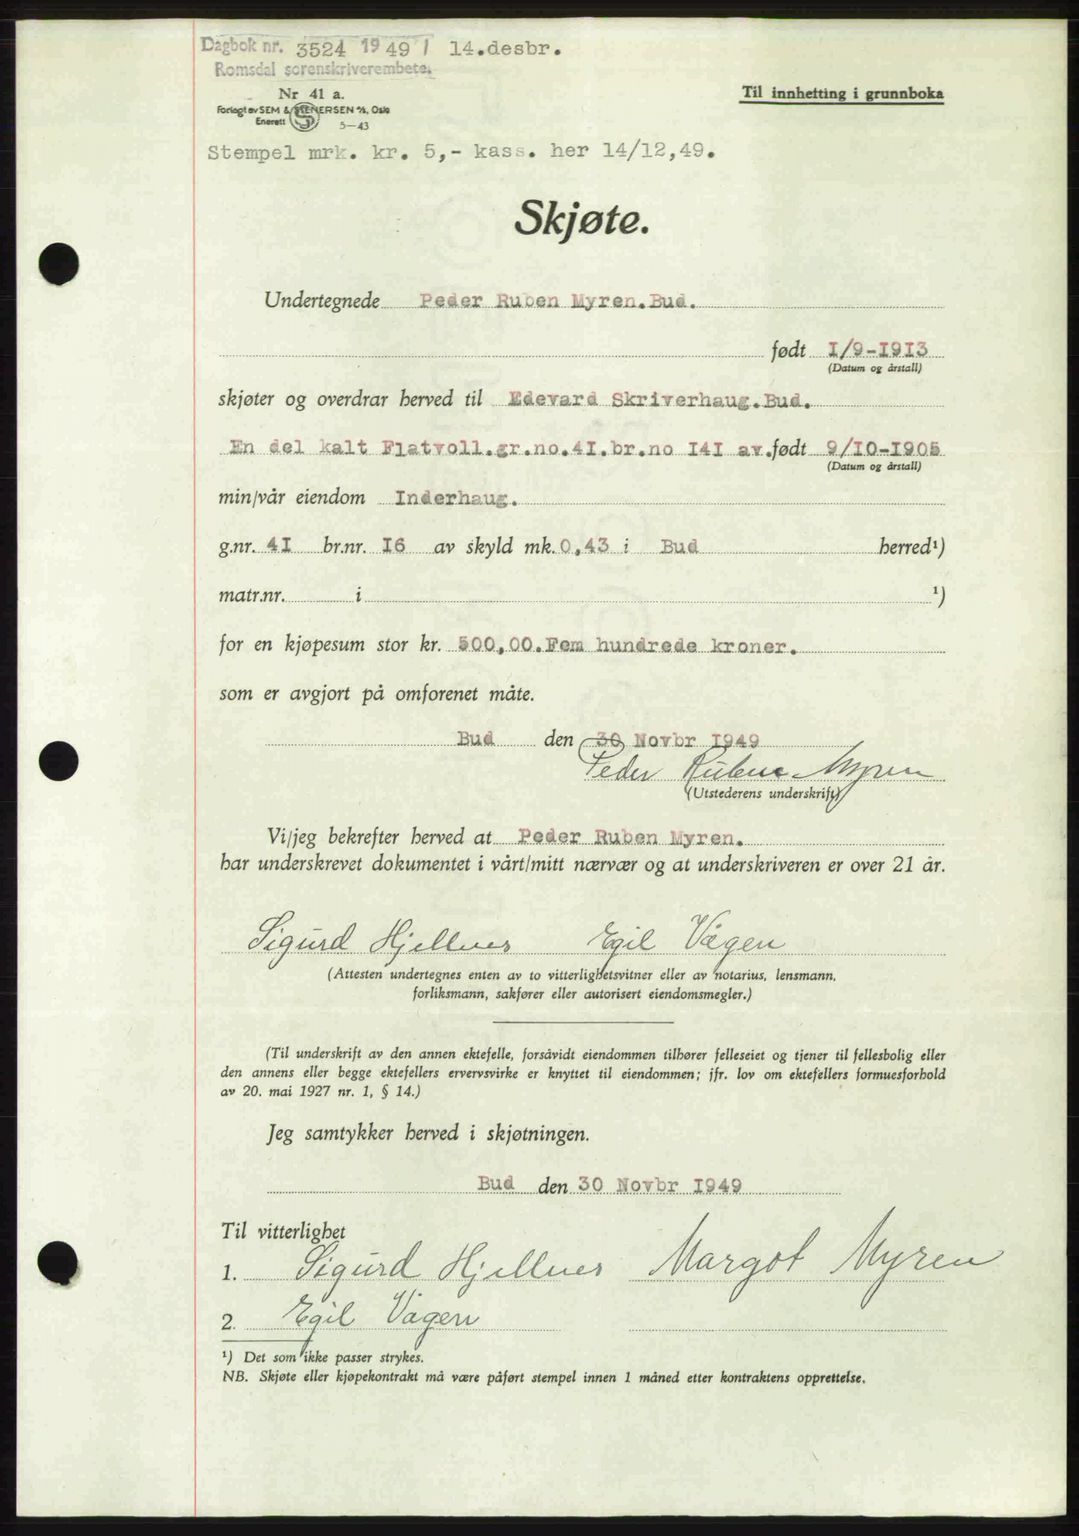 Dagbok nr. 3524 1949 / 14.desbr.
Romsdal sorenskriverembete.
Nr 41 a.
Forlagt av SEM & STENERSEN A/S, Oslo
Enerett 5—43
Til innhefting i grunnboka
Stempel mrk. kr. 5,- kass. her 14/12,49.
Skjøte.
Undertegnede Peder Ruben Myren.Bud.
født I/9-I9I3
(Datum og årstall)
skjøter og overdrar herved til Edevard Skriverhaug.Bud.
En del kalt Flatvoll.gr.no.4I.br.no I4I av.født 9/IO-I905
(Datum og årstall)
min/vår eiendom Inderhaug.
g.nr. 4I br.nr. I6 av skyld mk.0,43 i Bud herred¹)
matr.nr. i ¹)
for en kjøpesum stor kr. 500,00.Fem hundrede kroner.
som er avgjort på omforenet måte.
Bud den 30 Novbr I949
Peder Ruben Myren
(Utstederens underskrift)
Vi/jeg bekrefter herved at Peder Ruben Myren.
har underskrevet dokumentet i vårt/mitt nærvær og at underskriveren er over 21 år.
Sigurd Hjellnes Egil Vågen
(Attesten undertegnes enten av to vitterlighetsvitner eller av notarius, lensmann,
forliksmann, sakfører eller autorisert eiendomsmegler.)
(Til underskrift av den annen ektefelle, forsåvidt eiendommen tilhører felleseiet og tjener til fellesbolig eller
den annens eller begge ektefellers ervervsvirke er knyttet til eiendommen; jfr. lov om ektefellers formuesforhold
av 20. mai 1927 nr. 1, § 14.)
Jeg samtykker herved i skjøtningen.
Bud den 30 Novbr I949
Til vitterlighet
1. Sigurd Hjellnes Margot Myren
2. Egil Vågen
¹) Det som ikke passer strykes.
NB. Skjøte eller kjøpekontrakt må være påført stempel innen 1 måned etter kontraktens opprettelse.